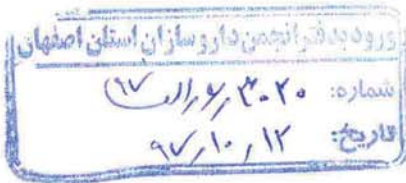 ورود به دفتر انجمن داروسازان استان اصفهان
شماره: ۳۰۲۰/ر۶/الف/۹۷
تاریخ: ۹۷/۱۰/۱۲